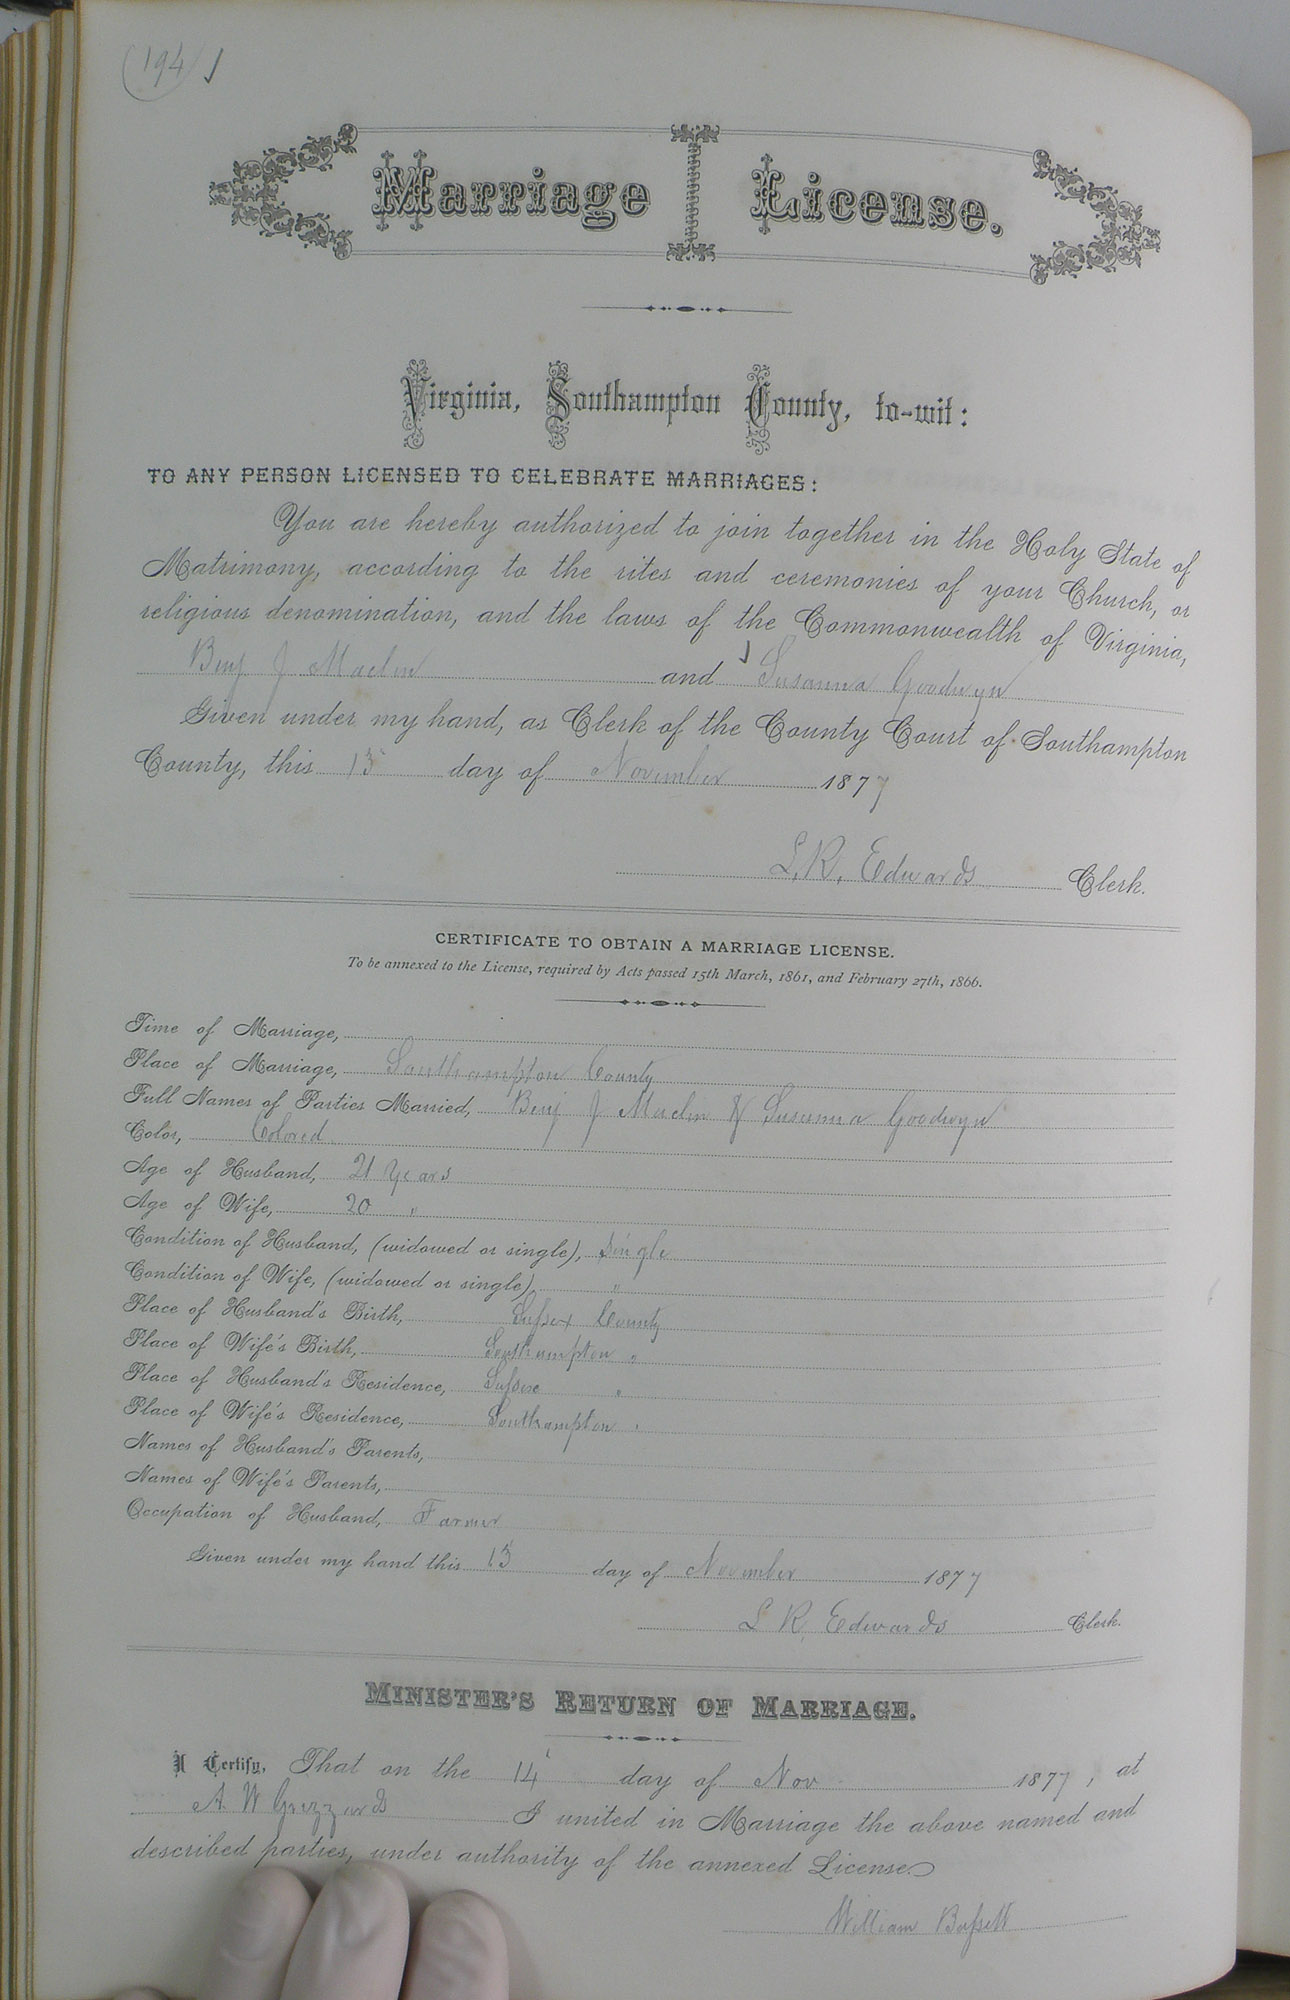 (194)
Marriage License.
Virginia, Southampton County, to-wit:
TO ANY PERSON LICENSED TO CELEBRATE MARRIAGES:
You are hereby authorized to join together in the Holy State of
Matrimony, according to the rites and ceremonies of your Church, or
religious denomination, and the laws of the Commonwealth of Virginia,
Benj J Maclin and Susanna Goodwyn
Given under my hand, as Clerk of the County Court of Southampton
County, this 13 day of November 1877
L. R. Edwards Clerk.
CERTIFICATE TO OBTAIN A MARRIAGE LICENSE.
To be annexed to the License, required by Acts passed 15th March, 1861, and February 27th, 1866.
Time of Marriage,
Place of Marriage, Southampton County
Full Names of Parties Married, Benj J Maclin & Susanna Goodwyn
Color, Colored
Age of Husband, 21 Years
Age of Wife, 20 "
Condition of Husband, (widowed or single), single
Condition of Wife, (widowed or single) "
Place of Husband's Birth, Sussex County
Place of Wife's Birth, Southampton "
Place of Husband's Residence, Sussex "
Place of Wife's Residence, Southampton "
Names of Husband's Parents,
Names of Wife's Parents,
Occupation of Husband, Farmer
Given under my hand this 13 day of November 1877
L R. Edwards Clerk.
MINISTER'S RETURN OF MARRIAGE.
I Certify, That on the 14 day of Nov 1877, at
A W Grizzards I united in Marriage the above named and
described parties, under authority of the annexed License.
William Bassett